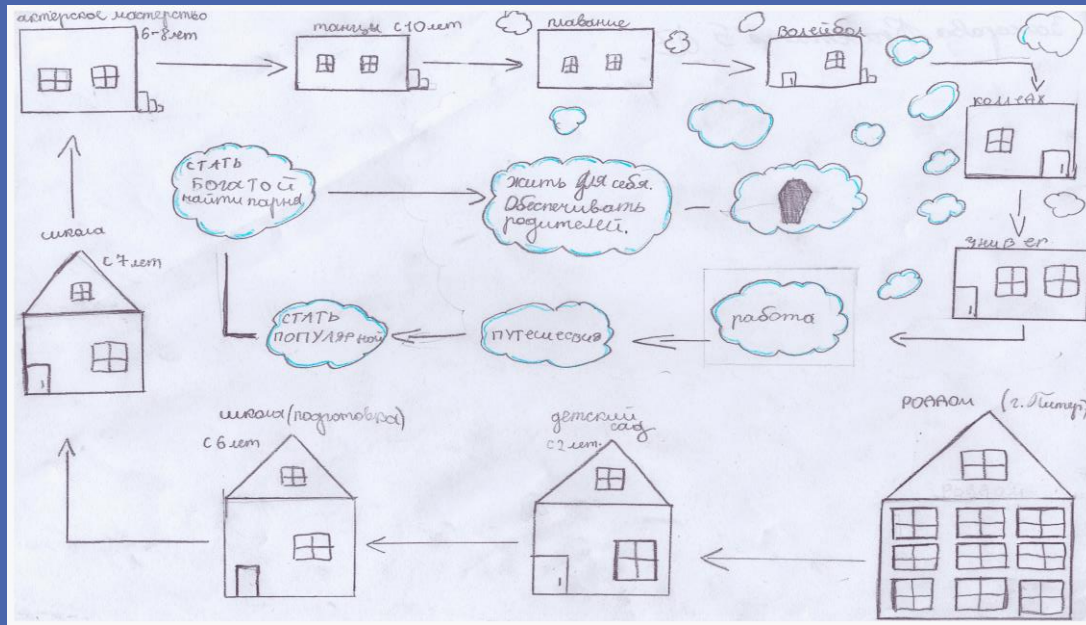 актерское мастерство
6-8 лет
танцы с 10 лет
плавание
волейбол
колледж
СТАТЬ
БОГАТОЙ
найти парня
жить для себя.
Обеспечивать
родителей.
школа
с 7 лет
универ
СТАТЬ
ПОПУЛЯРНОЙ
путешессвия
работа
школа (подготовка)
с 6 лет
детский
сад
с 2 лет.
РОДДОМ (г. Питер)